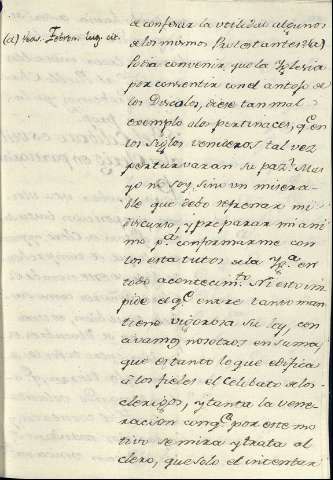 (a) Vease Febron. lug. cit.
de confesar la utilidad algunos
de los mismos Protestantes? (a)
Podia convenir que la Yglesia
por consentir con el antojo de
los Discolos, diese tan mal
exemplo a los pertinaces, q.e en
los siglos venideros tal vez
perturvaran su paz? Mas
yo no soy, sino un misera-
ble que debo refrenar mi
discurso, y preparar mi ani-
mo p.a conformarme con
los estatutos de la Yg.a en
todo acontecim.to Ni esto im-
pide el q.e entre tanto man-
tiene vigorosa su ley, con
civamos nosotros en suma,
que es tanto lo que edifica
â los fieles el Celibato de los
clerigos, y tanta la vene-
racion con q.e por este mo
tivo se mira y trata al
clero, que solo el intentar